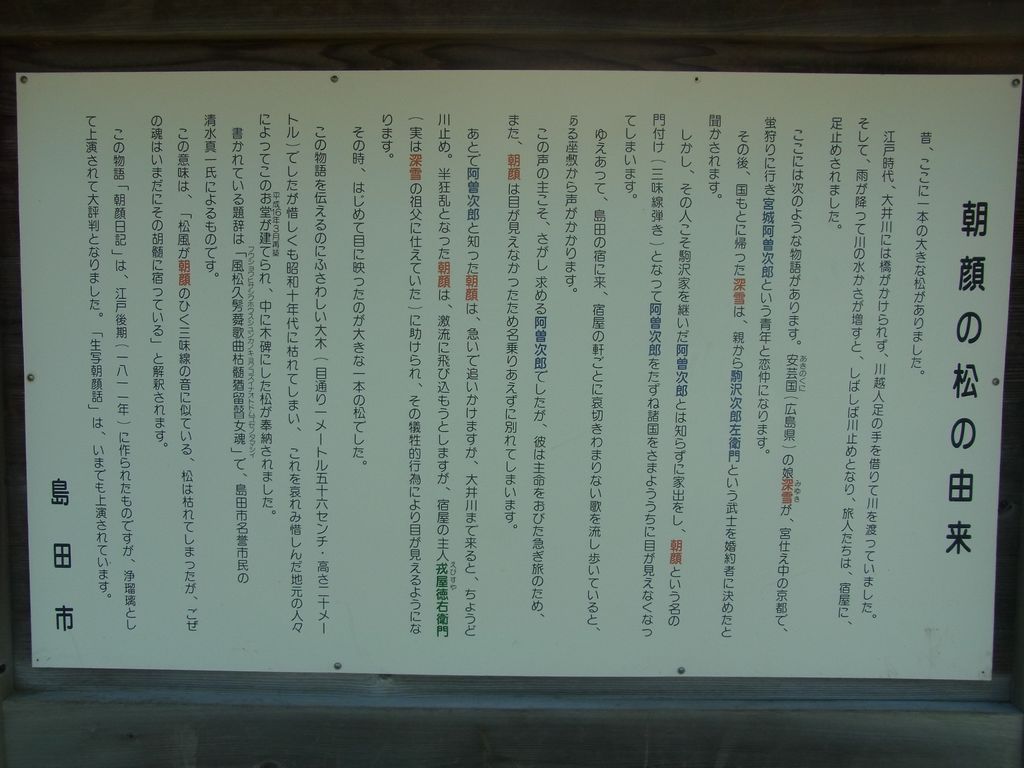 朝顔の松の由来
昔、ここに一本の大きな松がありました。
江戸時代、大井川には橋がかけられず、川越人足の手を借りて川を渡っていました。
そして、雨が降って川の水かさが増すと、しばしば川止めとなり、旅人たちは、宿屋に、
足止めされました。
ここには次のような物語があります。安芸国(広島県)の娘深雪が、宮仕え中の京都で、
あきのくに
みゆき
蛍狩りに行き宮城阿曽次郎という青年と恋仲になります。
その後、国もとに帰った深雪は、親から駒沢次郎左衛門という武士を婚約者に決めたと
聞かされます。
しかし、その人こそ駒沢家を継いだ阿曽次郎とは知らずに家出をし、朝顔という名の
門付け(三味線弾き)となって阿曽次郎をたずね諸国をさまよううちに目が見えなくなっ
てしまいます。
ゆえあって、島田の宿に来、宿屋の軒ごとに哀切きわまりない歌を流し歩いていると、
ある座敷から声がかかります。
この声の主こそ、さがし求める阿曽次郎でしたが、彼は主命をおびた急ぎ旅のため、
また、朝顔は目が見えなかったため名乗りあえずに別れてしまいます。
あとで阿曽次郎と知った朝顔は、急いで追いかけますが、大井川まで来ると、ちょうど
川止め。半狂乱となった朝顔は、激流に飛び込もうとしますが、宿屋の主人戎屋徳右衛門
えびすや
(実は深雪の祖父に仕えていた)に助けられ、その犠牲的行為により目が見えるようにな
ります。
その時、はじめて目に映ったのが大きな一本の松でした。
この物語を伝えるのにふさわしい大木(目通り一メートル五十六センチ・高さ二十メー
トル)でしたが惜しくも昭和十年代に枯れてしまい、これを哀れみ惜しんだ地元の人々
によってこのお堂が建てられ、中に木碑にした松が奉納されました。
平成16年3月再築
書かれている題辞は「風松久髣蕣歌曲枯髄猶留瞽女魂」で、島田市名誉市民の
清水真一氏によるものです。
この意味は、「松風が朝顔のひく三味線の音に似ている、松は枯れてしまったが、ごぜ
の魂はいまだにその胡髄に宿っている」と解釈されます。
この物語「朝顔日記」は、江戸後期(一八一一年)に作られたものですが、浄瑠璃とし
て上演されて大評判となりました。「生写朝顔話」は、いまでも上演されています。
島田市